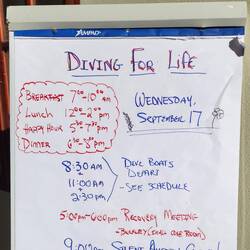 DIVING FOR LIFE
BREAKFAST 7:00-10:00 AM
LUNCH 12:00-2:00 PM
HAPPY HOUR 5:30-7:30 PM
DINNER PM
WEDNESDAY,
SEPTEMBER 17
8:30AM
11:00AM
2:30PM
DIVE BOATS
DEPART
- SEE SCHEDULE
5:00PM-6:00PM RECOVERY MEETING
ROOM
SILENT AUCTION